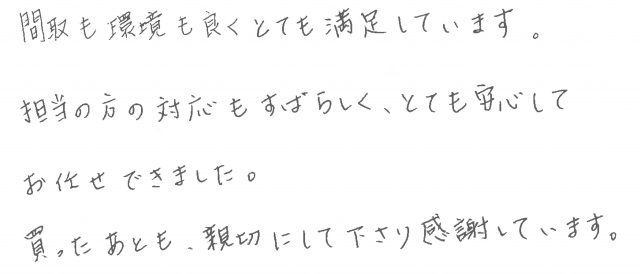 間取も環境も良くとても満足しています。
担当の方の対応もすばらしく、とても安心して
お任せできました。
買ったあとも、親切にして下さり感謝しています。